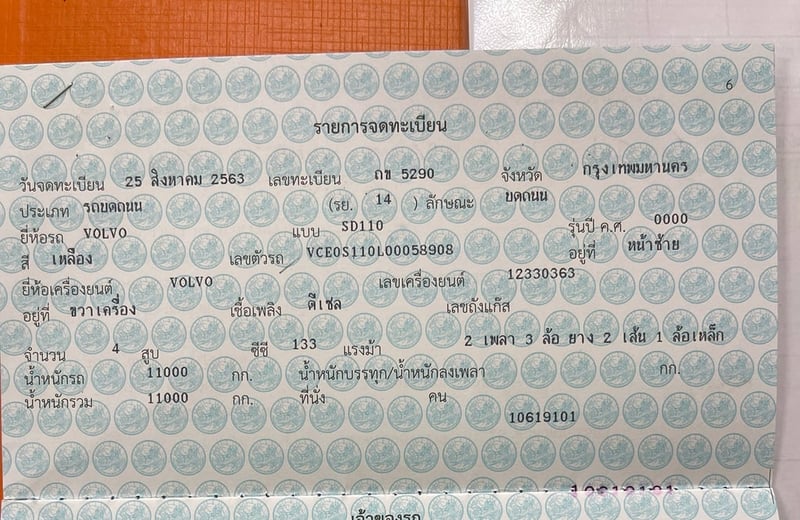 6
รายการจดทะเบียน
วันจดทะเบียน 25 สิงหาคม 2563 เลขทะเบียน ถข 5290 จังหวัด กรุงเทพมหานคร
ประเภท รถบดถนน (รย. 14 ) ลักษณะ บดถนน
ยี่ห้อรถ VOLVO แบบ SD110 รุ่นปี ค.ศ. 0000
สี เหลือง เลขตัวรถ VCE0S110L00058908 อยู่ที่ หน้าซ้าย
ยี่ห้อเครื่องยนต์ VOLVO เลขเครื่องยนต์ 12330363
อยู่ที่ ขวาเครื่อง เชื้อเพลิง ดีเซล เลขถังแก๊ส
จำนวน 4 สูบ ซีซี 133 แรงม้า 2 เพลา 3 ล้อ ยาง 2 เส้น 1 ล้อเหล็ก
น้ำหนักรถ 11000 กก. น้ำหนักบรรทุก/น้ำหนักลงเพลา กก.
น้ำหนักรวม 11000 กก. ที่นั่ง คน
10619101
เจ้าของรถ